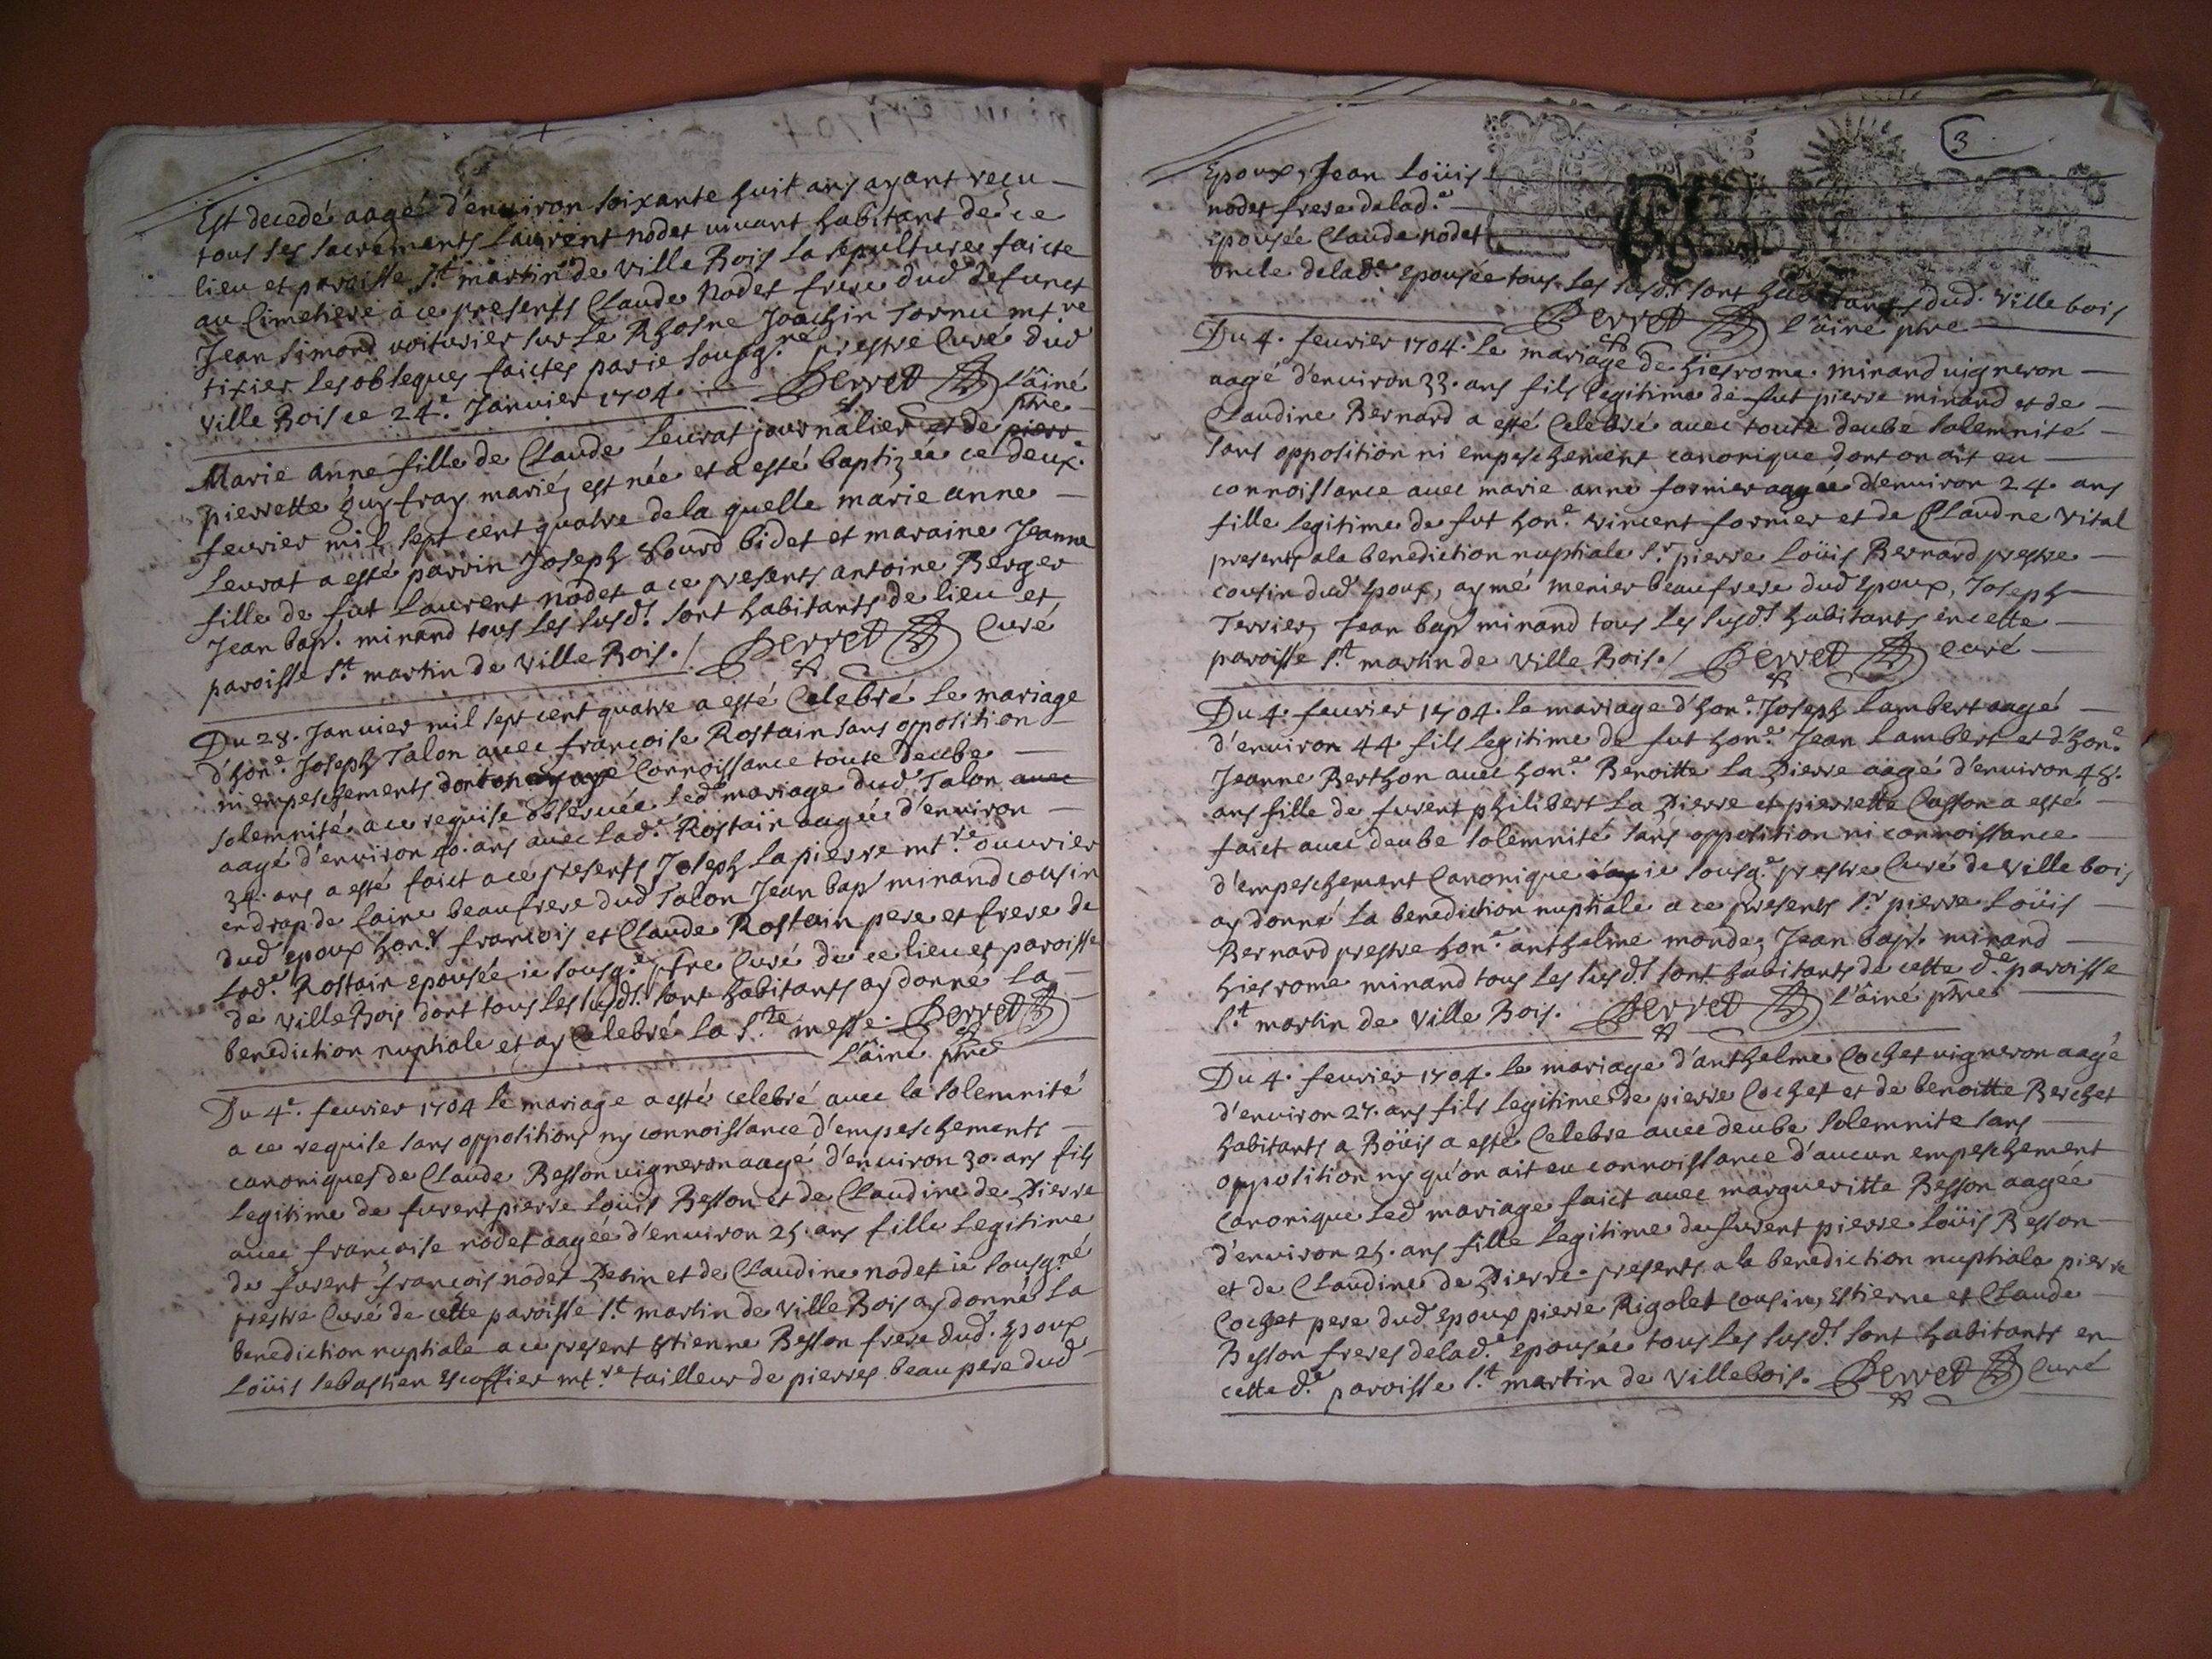 Est decedé aagé d'enuiron soixante huit ans ayant reçu
tous ses sacrements Laurent nodet viuant habitant de ce
lieu et paroisse St martin de ville Bois la sepulture faicte
au Cimetiere a ce presents Claude Nodet frere dud defunct
Jean simond voiturier sur Le Rhosne Joachin tornu mtre
tixier les obseques faictes par ie sousg.né prestre Curé dud
ville Bois ce 24e. Januier 1704. Perret L'âiné
ptre
Marie anne fille de Claude Leurat journalier et de pierr
pierrette guyfray mariéz est née et a esté baptizée ce deux.
feurier mil sept cent quatre de la quelle marie anne
Leurat a esté parrin Joseph Bourd bidet et maraine Jeanne
fille de fut Laurent nodet a ce presents antoine Berger
Jean bap.t minand tous Les susd.t sont habitants de lieu et
paroisse St. martin de ville Bois./ Perret Curé
Du 28. Januier mil sept cent quatre a esté Celebré Le mariage
d'hon.e Joseph Talon auec francoise Rostain sans opposition
ni empeschements dont on aye Connoissance toute deube
solemnité a ce requise obseruée Led mariage dud Talon auec
aagé d'enuiron 40. ans auec Lad.e Rostain aagée d'enuiron
34. ans a esté faict a ce presents Joseph Lapierre mt.re ouurier
en drap de Laine beaufrere dud Talon Jean bap.t minand cousin
dud epoux hon.t francois et Claude Rostain pere et frere de
Lad.e Rostain epousée ie sousg.é ptre Curé de ce lieu et paroisse
de ville Bois dont tous Les susd.t sont habitants ay donné La
benediction nuptiale et ay Celebré La S.te messe. Perret
L'âiné ptre
Du 4e. feurier 1704 Le mariage a esté celebré auec la solemnité
a ce requise sans oppositions ny connoissance d'empeschements
canoniques de Claude Besson vigneron aagé d'enuiron 30. ans fils
Legitime de furent pierre Loüis Besson et de Claudine de Pierre
auec francoise nodet aagée d'enuiron 25. ans fille Legitime
de furent françois nodet et de Claudine nodet ie sousg.né
prestre Curé de cette paroisse St. martin de ville Bois ay donné La
benediction nuptiale a ce present Estienne Besson frere dud. Epoux
Loüis sebastien Escoffier mt.re tailleur de pierres beaupere dud
3
Epoux, Jean Loüis
nodet frere de lad.e
epousée Claude nodet
oncle de lad.e epousée tous Les susd.t sont habitants dud. ville bois
Perret L'âiné ptre
Du 4. feurier 1704. Le mariage de hierome minand vigneron
aagé d'enuiron 33. ans fils Legitime de fut pierre minand et de
Claudine Bernard a esté Celebré auec toute deube solemnité
sans opposition ni empeschement canonique dont on ait eu
connoissance auec marie anne fornier aagée d'enuiron 24. ans
fille Legitime de fut hon.e vincent fornier et de Claudne vital
presents a la benediction nuptiale S.r pierre Loüis Bernard prestre
cousin dud Epoux, aymé menier beaufrere dud Epoux, Joseph
Terrier, Jean bap.t minand tous Les susd.t habitants en cette
paroisse St. martin de ville Bois./ Perret Curé
Du 4. feurier 1704. Le mariage d'hon.e Joseph Lambert aagé
d'enuiron 44. fils Legitime de fut hon.e Jean Lambert et d'hon.e
Jeanne Berthon auec hon.e Benoitte La Pierre aagé d'enuiron 48.
ans fille de furent philibert La Pierre et pierrette Casson a esté
faict auec deube solemnité sans opposition ni connoissance
d'empeschement Canonique ie sousg.é prestre Curé de ville bois
ay donné La benediction nuptiale a ce presents S.r pierre Loüis
Bernard prestre hon.e anthelme mondez Jean bap.t minand
hierome minand tous Les susd.t sont habitants de cette d.e paroisse
St. martin de ville Bois. Perret L'âiné ptre
Du 4. feurier 1704. Le mariage d'anthelme Cochet vigneron aagé
d'enuiron 27. ans fils Legitime de pierre Cochet et de benoitte Berchet
habitants a Boüis a esté Celebre auec deube solemnite sans
opposition ny qu'on ait eu connoissance d'aucun empeschement
Canonique Led mariage faict auec margueritte Besson aagée
d'enuiron 25. ans fille Legitime de furent pierre Loüis Besson
et de Claudine de Pierre. presents a la benediction nuptiale pierre
Cochet pere dud epoux pierre Rigolet cousin, Estienne et Claude
Besson freres de lad.e epousée tous Les susd.t sont habitants en
cette d.e paroisse St. martin de villebois. Perret Curé